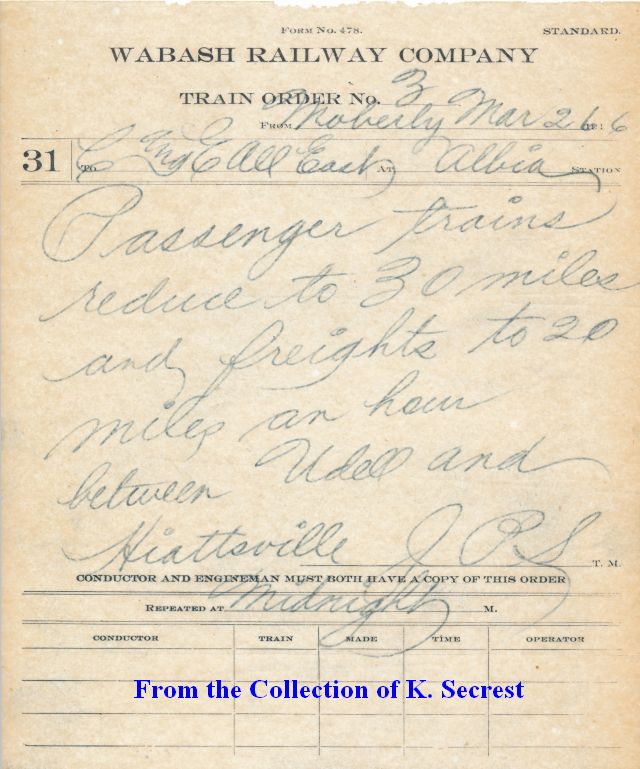 FORM NO. 478. STANDARD.
WABASH RAILWAY COMPANY
TRAIN ORDER NO. 3
FROM Moberly Mar 26 191 6
31 TO C Eng E All East AT Albia STATION
Passenger trains
reduce to 30 miles
and freights to 20
miles an hour
between Udell and
Hiattsville J P S T. M.
CONDUCTOR AND ENGINEMAN MUST BOTH HAVE A COPY OF THIS ORDER
REPEATED AT Midnight M.
CONDUCTOR TRAIN MADE TIME OPERATOR
From the Collection of K. Secrest